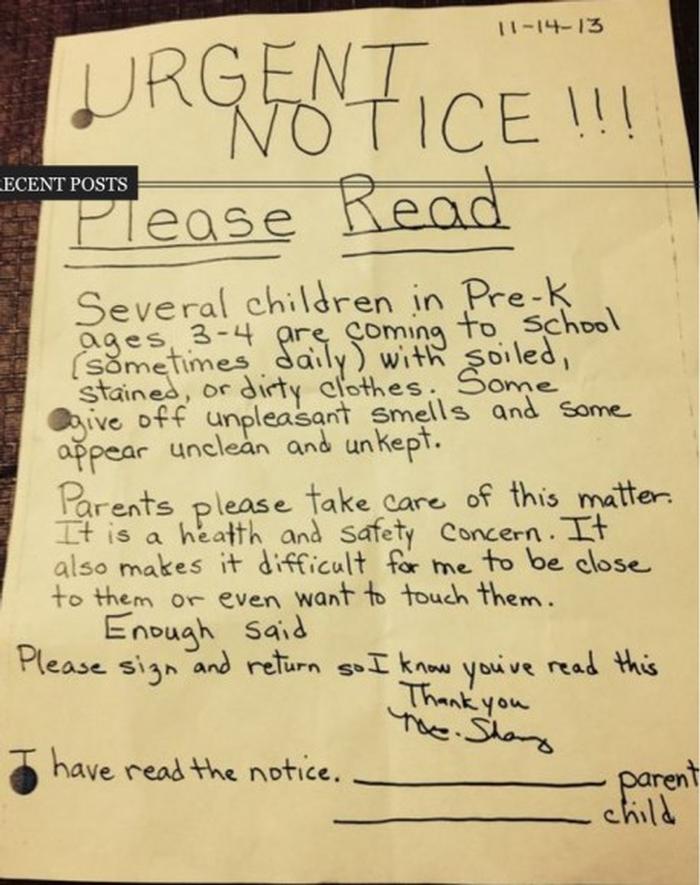 11-14-13
URGENT
NOTICE!!!
RECENT POSTS
Please Read
Several children in Pre-K
ages 3-4 are coming to school
(sometimes daily) with soiled,
stained, or dirty clothes. Some
give off unpleasant smells and some
appear unclean and unkept.
Parents please take care of this matter.
It is a heatth and safety concern. It
also makes it difficult for me to be close
to them or even want to touch them.
Enough said
Please sign and return so I know youive read this
Thank you
I have read the notice. parent
child